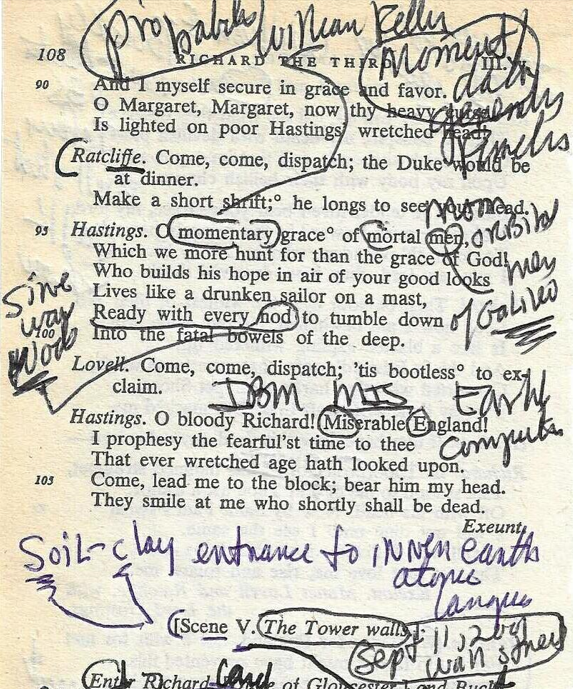 probably William Kelly
108 RICHARD THE THIRD III. v.
Moment
data
90 And I myself secure in grace and favor.
O Margaret, Margaret, now thy heavy curse
Is lighted on poor Hastings' wretched head!
Ratcliffe. Come, come, dispatch; the Duke would be
at dinner.
Make a short shrift;° he longs to see your head.
Mom
95 Hastings. O momentary grace° of mortal men,
orbital
Which we more hunt for than the grace of God!
Who builds his hope in air of your good looks
men
Lives like a drunken sailor on a mast,
of Galileo
Sine
way
Ready with every nod to tumble down
100 Into the fatal bowels of the deep.
Lovell. Come, come, dispatch; 'tis bootless° to ex-
claim.
IBM MIS Earth
computer
Hastings. O bloody Richard! Miserable England!
I prophesy the fearful'st time to thee
That ever wretched age hath looked upon.
105 Come, lead me to the block; bear him my head.
They smile at me who shortly shall be dead.
Exeunt.
Soil-clay entrance to inner earth
[Scene V. The Tower walls.]
Sept 11, 2001
wall
Enter Richard of Gloucester